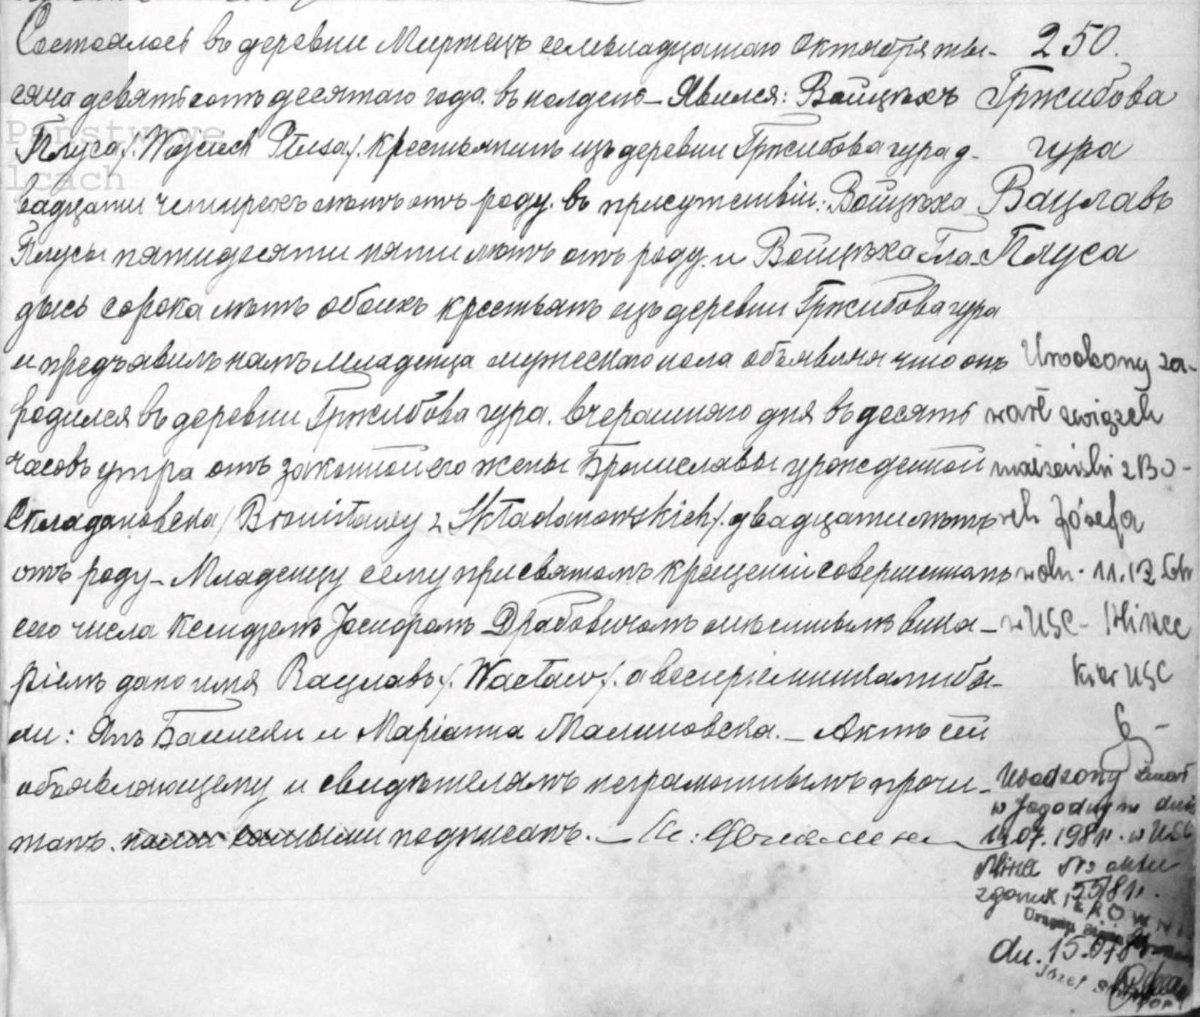 Состоялось въ деревни Миржецъ семьнадцатаго Октября ты-
сяча девятьсотъ десятаго года въ полдень – Явился: Войцѣхъ
Плуса /. Wojciech Płusa /. крестьянинъ изъ деревни Гржибовагура д-
вадцати четирехъ лѣтъ отъ роду. въ присутствіи: Войцѣха
Плусы пятидесяти пяти лѣтъ отъ роду. и Войцѣха Гла-
дысь сорока лѣтъ обоихъ крестьянъ изъ деревни Гржибовагура
и предъявилъ намъ младенца мужескаго пола объявляя что онъ
родился въ деревни Гржибова гура. вчерашняго дня въ десять
часовъ утра отъ законной его жены Брониславы урожденной
Складановска / Bronisławy z Składanowskich /. двадцати лѣтъ
отъ роду – Младенцу сему при святомъ крещеніи совершенномъ
сего числа Ксендземъ Драбовичомъ мѣстнымъ вика-
ріемъ дано имя Вацлавъ /. Wacław /. а воспріемниками бы-
ли: Янъ и Маріанна Малиновска. – Актъ сей
объявляющему и свидѣтелямъ неграмотнымъ прочи-
танъ. нами подписанъ. – Кс:
250.
Гржибова
гура
Вацлавъ
Плуса
Urodzony za-
warł związek
małżeński z Bo-
Józefa
w dn. 11.12
w USC – Mirzec
Kier USC
Urodzony zmarł
w Jagodnym dnia
07. 1981 r. w USC
Mirzec Nr aktu
zgonu 55/81 r.
dn. 15.07.81
Józef